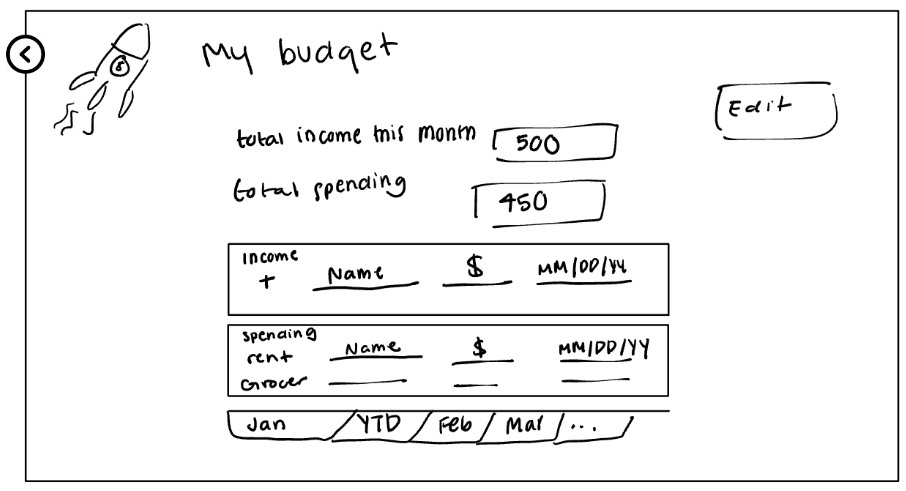 My budget
Edit
total income this month 500
total spending 450
Income
+ Name $ MM/DD/YY
Spending
rent Name $ MM/DD/YY
Grocer
Jan YTD Feb Mar ...